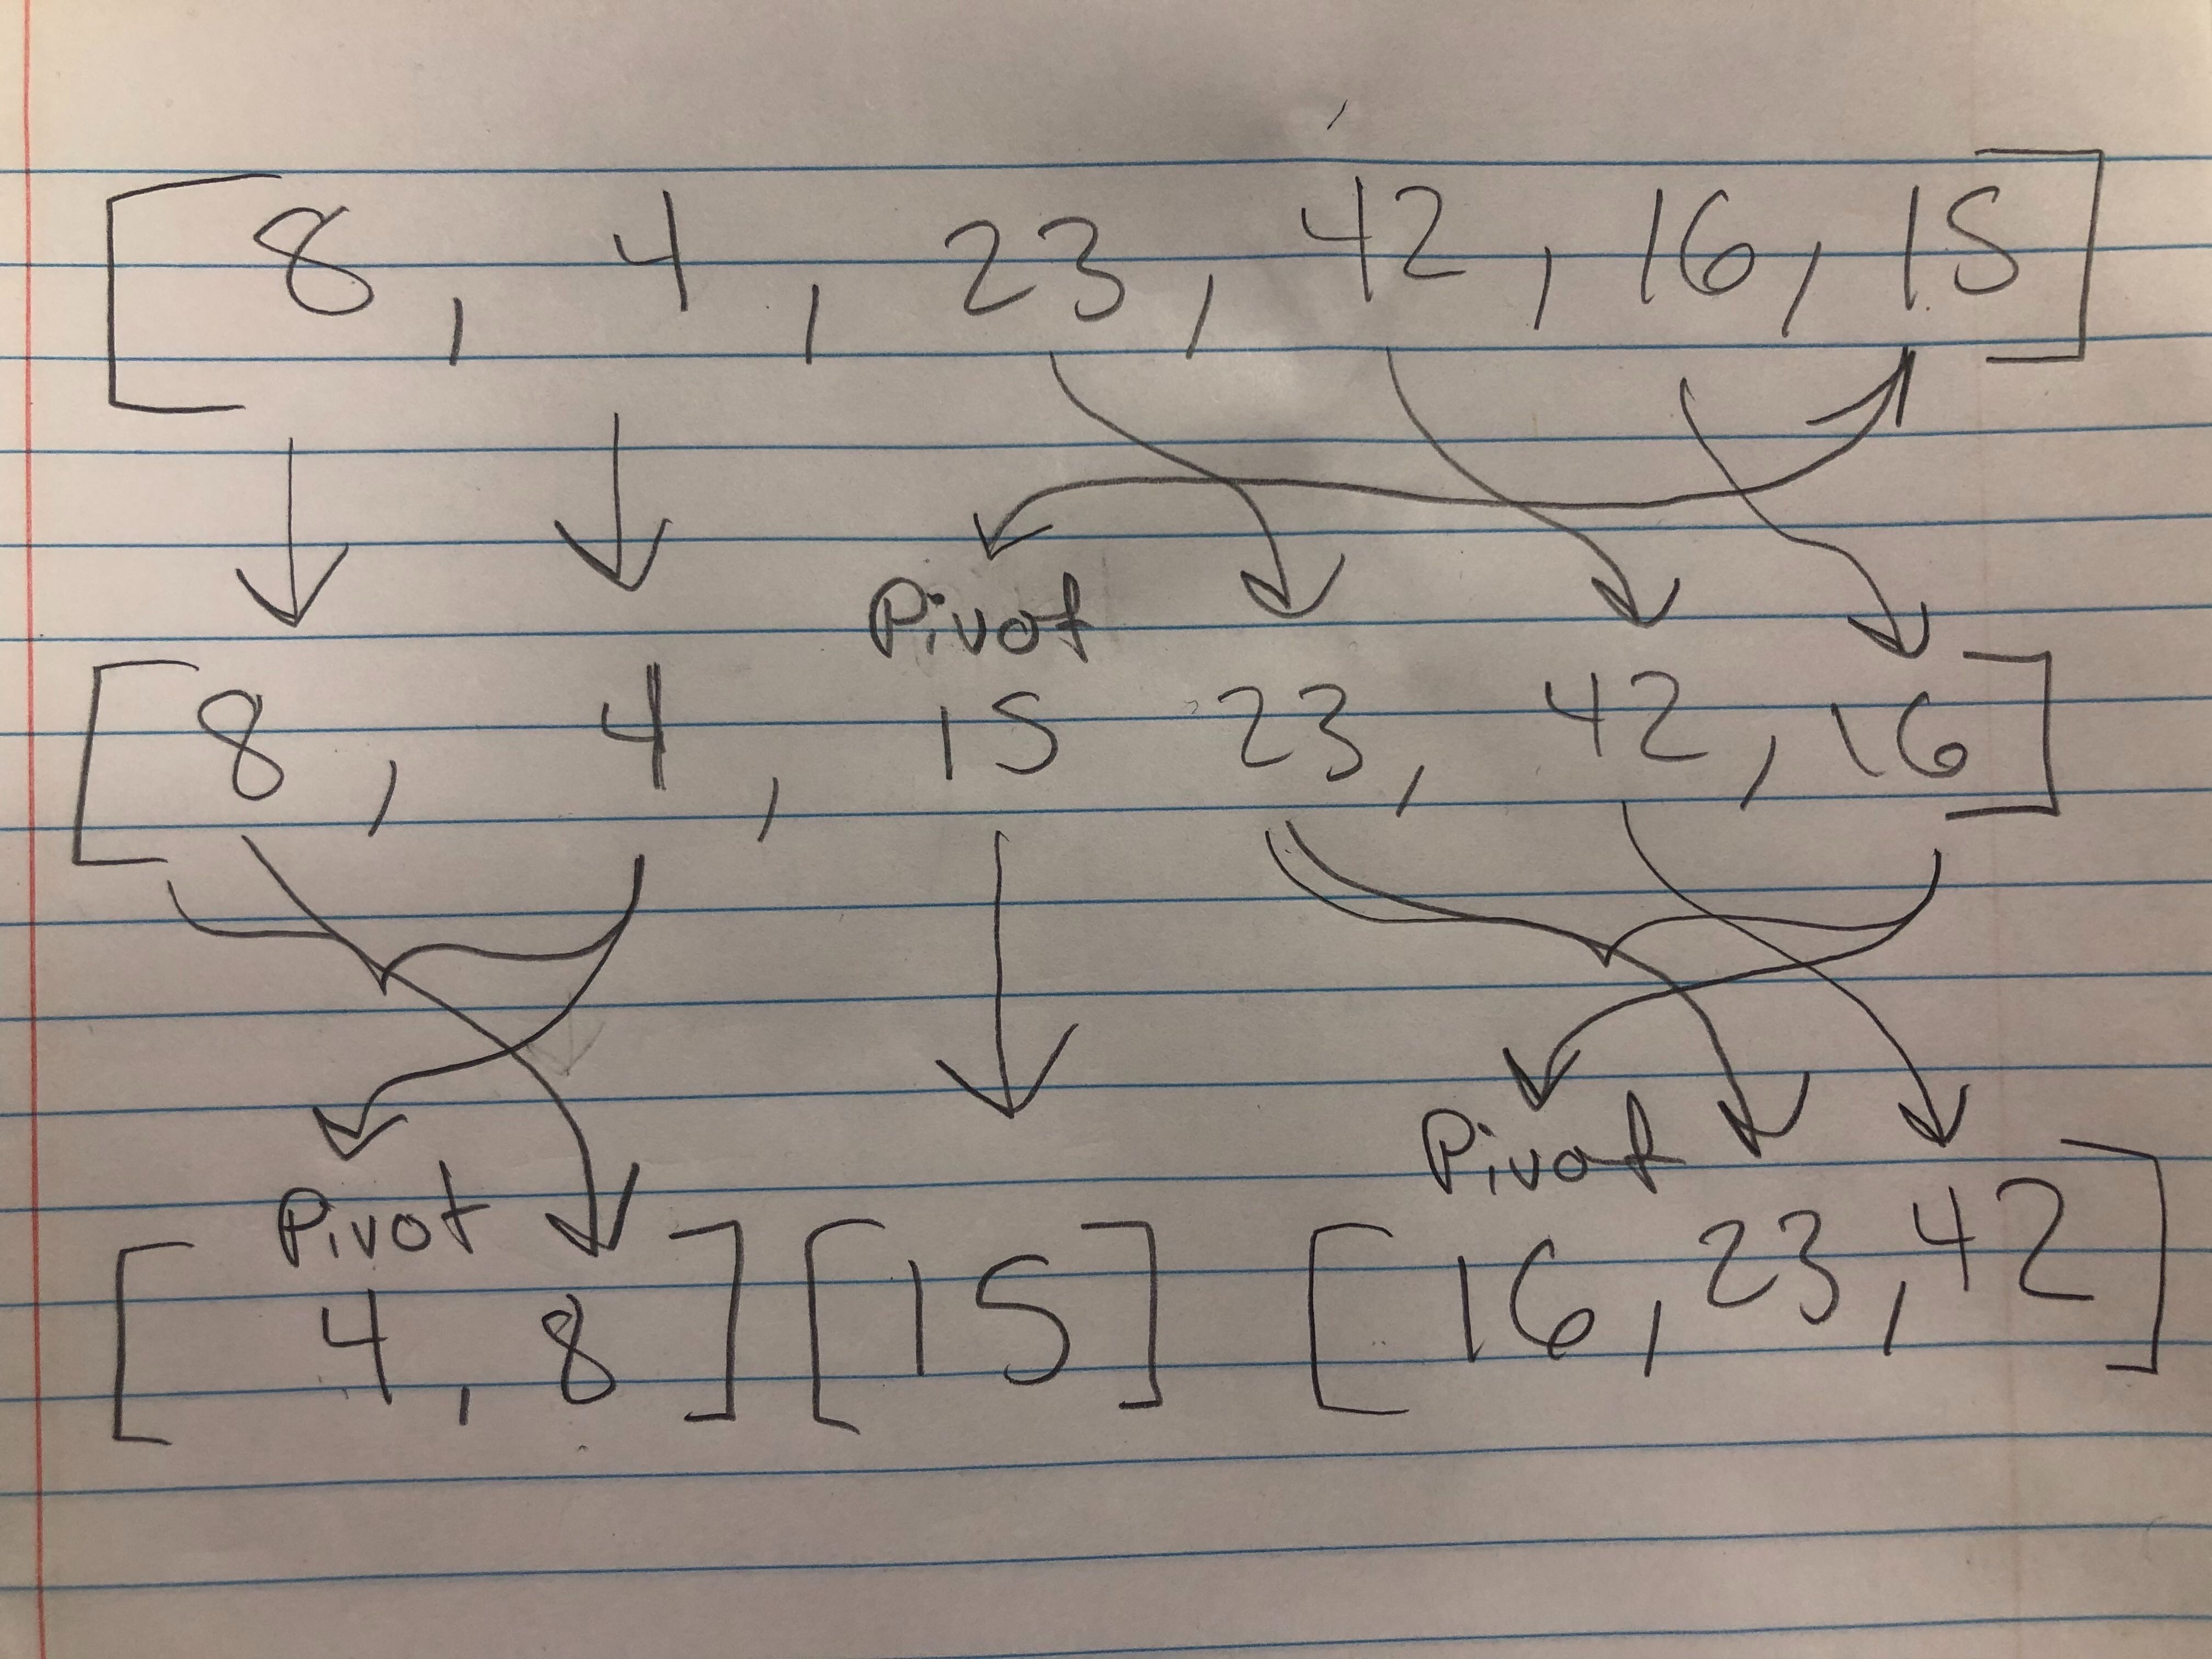 [8, 4, 23, 42, 16, 15]
Pivot
[8, 4, 15 23, 42, 16]
Pivot
Pivot
[4, 8] [15] [16, 23, 42]